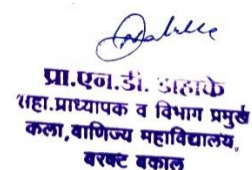 प्रा.एन.डी. डाहाके
सहा.प्राध्यापक व विभाग प्रमुख
कला,वाणिज्य महाविद्यालय,
बरबट बकाल